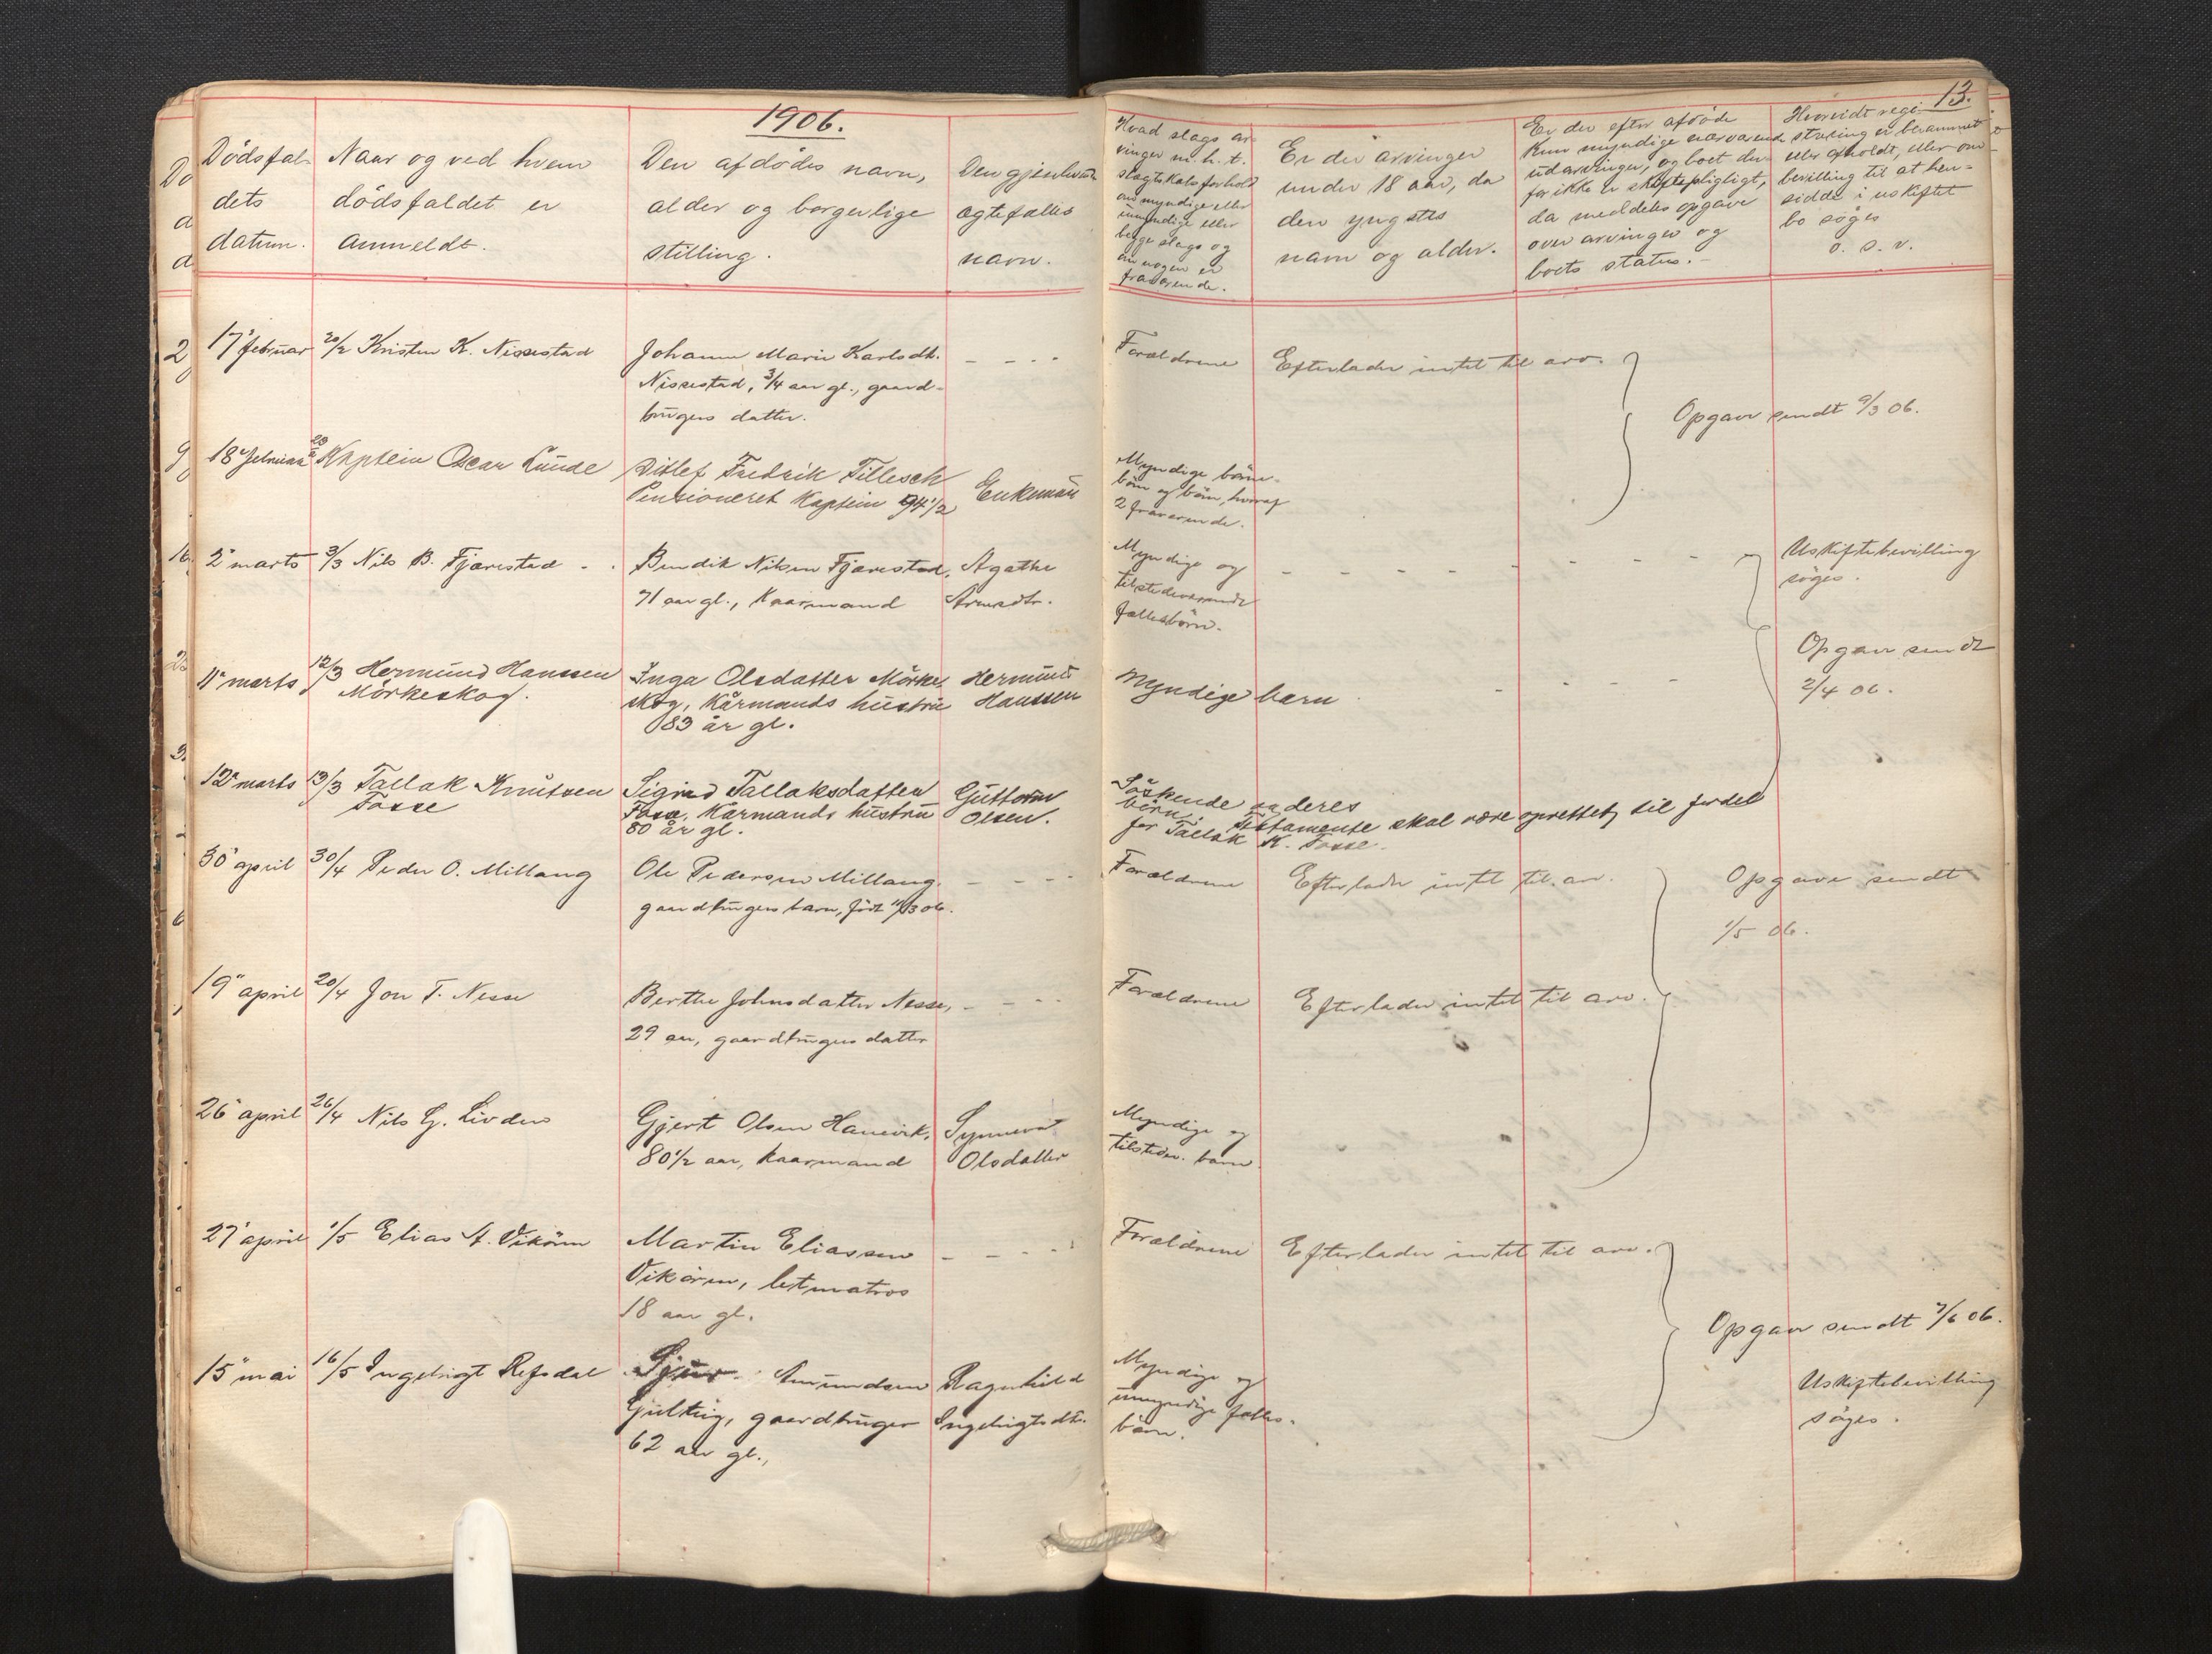 1906.
13.
Dödsfal-
dets
datum.
Naar og ved hvem
dödsfaldet er
anmeldt.
Den afdödes navn,
alder og borgerlige
stilling.
Den gjenlevende
ægtefælles
navn.
Hvad slags ar-
vinger m. h. t.
slægtskabsforhold
om myndige eller
umyndige eller
begge slags og
om nogen er
fraværende.
Er der arvinger
under 18 aar, da
den yngstes
navn og alder.
Er der efter afdöde
kun myndige nærværende
udarvinger, og boet der-
for ikke er skiftepligtigt,
da meddeles opgave
over arvinger og
boets status.
Hvorvidt regi-
strering er berammet
eller afholdt, eller om
bevilling til at hen-
sidde i uskiftet
bo söges
o. s. v.
17 februar 20/2 Kristen K. Nissestad
Johanne Marie Karlsdt.
Nissestad, 3/4 aar gl., gaard-
brugers datter.
Forældrene
Efterlader intet til arv.
Opgave sendt 9/3 06.
18 februar Kaptein Oscar Lunde
Ditlef Fredrik Tillesch
Pensioneret Kaptein 94 1/2
Enkemann
Myndige barne-
börn og börn, hvoraf
2 fraværende.
2 marts 3/3 Nils B. Fjærestad
Bendik Nilsen Fjærestad,
71 aar gl., Kaarmand
Agathe
Myndige og
tilstedeværende
fællesbörn.
Uskiftebevilling
söges.
11 marts 12/3 Hermund Hanssen
Mörkeskog.
Inga Olsdatter Mörke
skog, Kårmands hustru
83 år gl.
Hermund
Hanssen
Myndige barn
Opgave sendt
2/4 06.
12 marts 13/3 Tallak Knutsen
Fosse
Sigrid Tallaksdatter
Fosse, Kårmands hustru
80 år gl.
Guttorm
Olsen.
Söskende og deres
börn. Testamente skal være oprettet, til fordel
for Tallak K. Fosse.
30 april 30/4 Peder O. Millang
Ole Pedersen Millang,
gaardbrugers barn, födt 11/3 06.
Forældrene
Efterlader intet til arv.
Opgave sendt
1/5 06.
19 april 20/4 Jon T. Nesse
Berthe Johnsdatter Nesse,
29 aar, gaardbrugers datter
Forældrene
Efterlader intet til arv.
26 april 26/4 Nils G. Livden
Gjert Olsen Hamvik,
80 1/2 aar, Kaarmand
Synneva
Olsdatter
Myndige og
tilstedev. barn
27 april 1/5 Elias A. Vikören
Martin Eliassen
Vikören, letmatros
18 aar gl.
Forældrene
Efterlader intet til arv.
Opgave sendt 7/6 06.
15 mai 16/5 Ingebrigt Refsdal
Sjur Amundsen
gaardbruger
62 aar gl.,
Ragnhild
Ingebrigtsdt.
Myndige og
umyndige fælles-
börn.
Uskiftebevilling
söges.